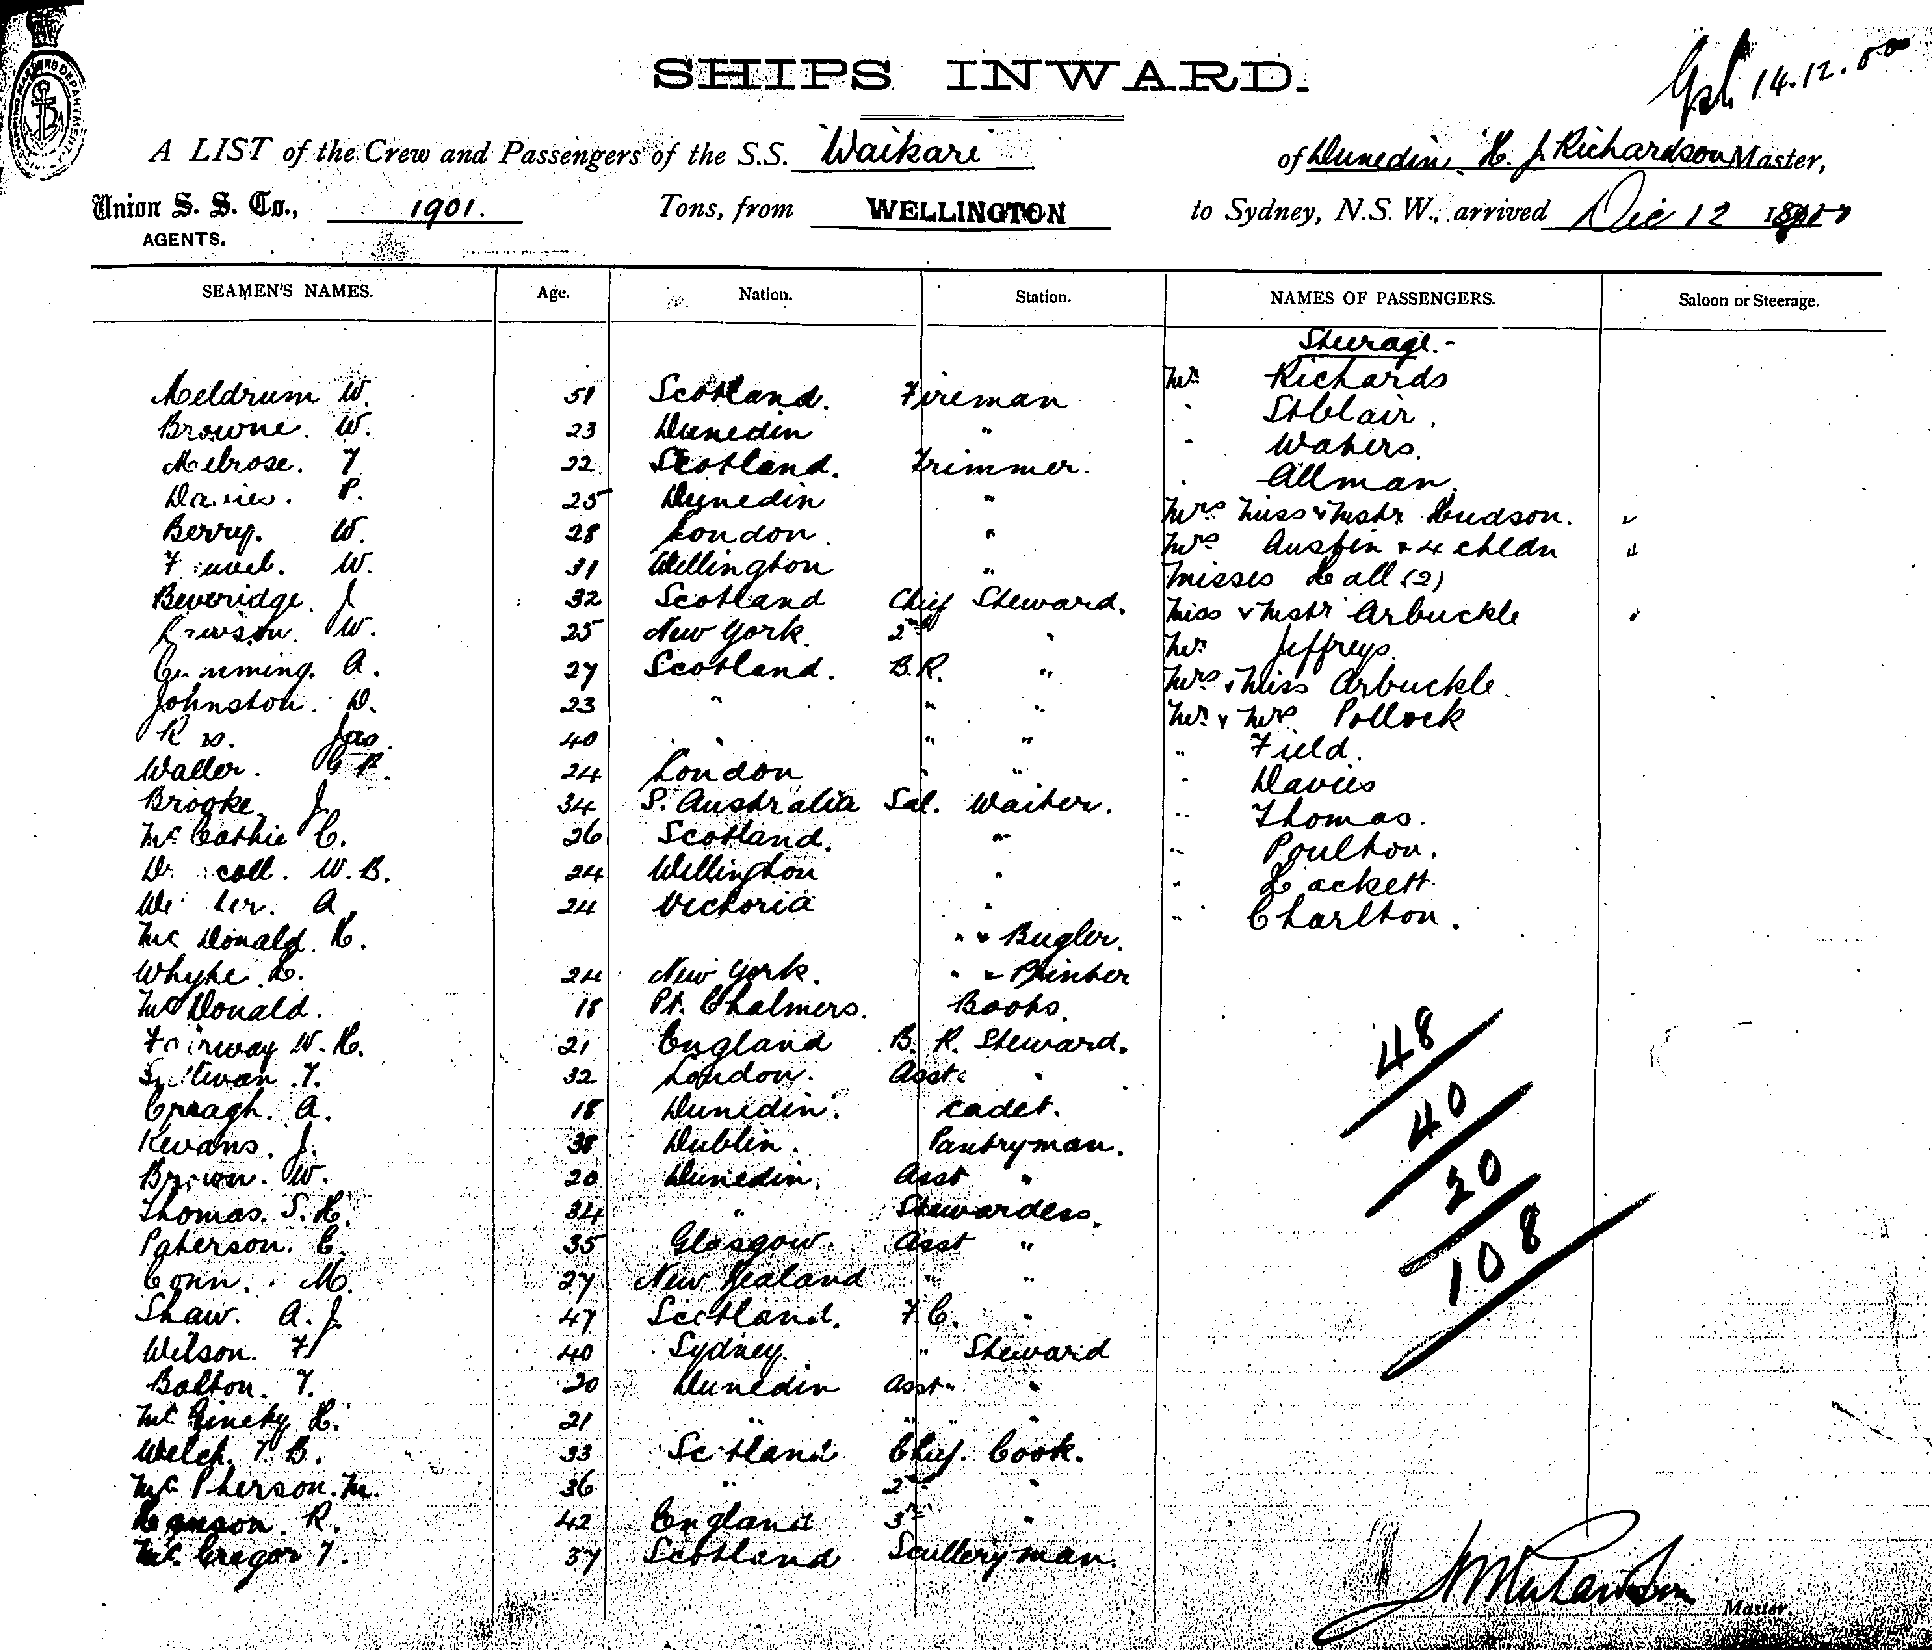 SHIPS INWARD.
14.12.00
A LIST of the Crew and Passengers of the S.S. Waikare of Dunedin, H. J. Richardson Master,
Union S. S. Co., 1901. Tons, from WELLINGTON to Sydney, N.S.W., arrived Dec 12
AGENTS.
SEAMEN'S NAMES. Age. Nation. Station. NAMES OF PASSENGERS. Saloon or Steerage.
Steerage.-
Meldrum W. 51 Scotland. Fireman Mr. Richards
Browne. W. 23 Dunedin " " St Clair.
Melrose. T 22 Scotland. Trimmer. " Waters.
Davies. P. 25 Dunedin " " Allman.
Berry. W. 28 London. " Mrs Miss & Mstr Hudson. "
W. 31 Wellington " Mrs Austin & 4 chldn "
Beveridge. J 32 Scotland Chief Steward. Misses Hall (2)
W. 25 New York. 2nd " Miss & Mstr Arbuckle "
Cumming. A. 27 Scotland. B.R. " Mr Jeffreys.
Johnston. D. 23 " " " Mrs & Miss Arbuckle.
Jas. 40 " " " Mr & Mrs Pollock
Waller. G P. 24 London " " " Field.
Brooke. J. 34 S. Australia Sal. Waiter. " Davies
McCathie C. 26 Scotland. " " Thomas.
W. B. 24 Wellington " " Poulton.
A 24 Victoria " " Hackett
McDonald. H. " " Bugler. " Charlton.
Whyte. H. 24 New York. " " Printer
McDonald. 18 Pt. Chalmers. Boots.
Fairway W. H. 21 England B. R. Steward.
Sullivan. T. 32 London. Asst. "
Creagh. A. 18 Dunedin. cadet.
Kevans. J. 38 Dublin. Pantryman.
Brown. W. 20 Dunedin. Asst "
Thomas. S. H. 34 " Stewardess.
Paterson. C. 35 Glasgow. Asst "
Conn. M. 27 New Zealand " "
Shaw. A. J. 47 Scotland. F C. "
Wilson. F 40 Sydney " Steward
Bolton. T. 20 Dunedin Asst "
H. 21 " " " "
Welch. T. B. 33 Scotland Chief. Cook.
McPherson. M. 36 " 2nd "
Hanson. R. 42 England 3rd "
McGregor T. 37 Scotland Scullery man.
48
40
20
108
Master.